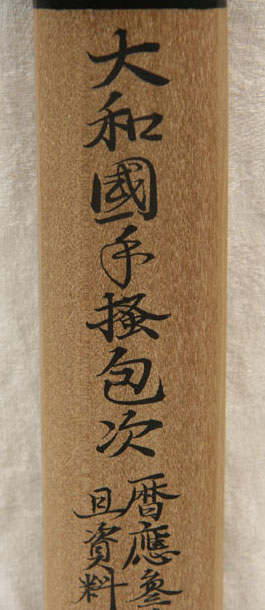 大和國手掻包次
暦應參
且資料